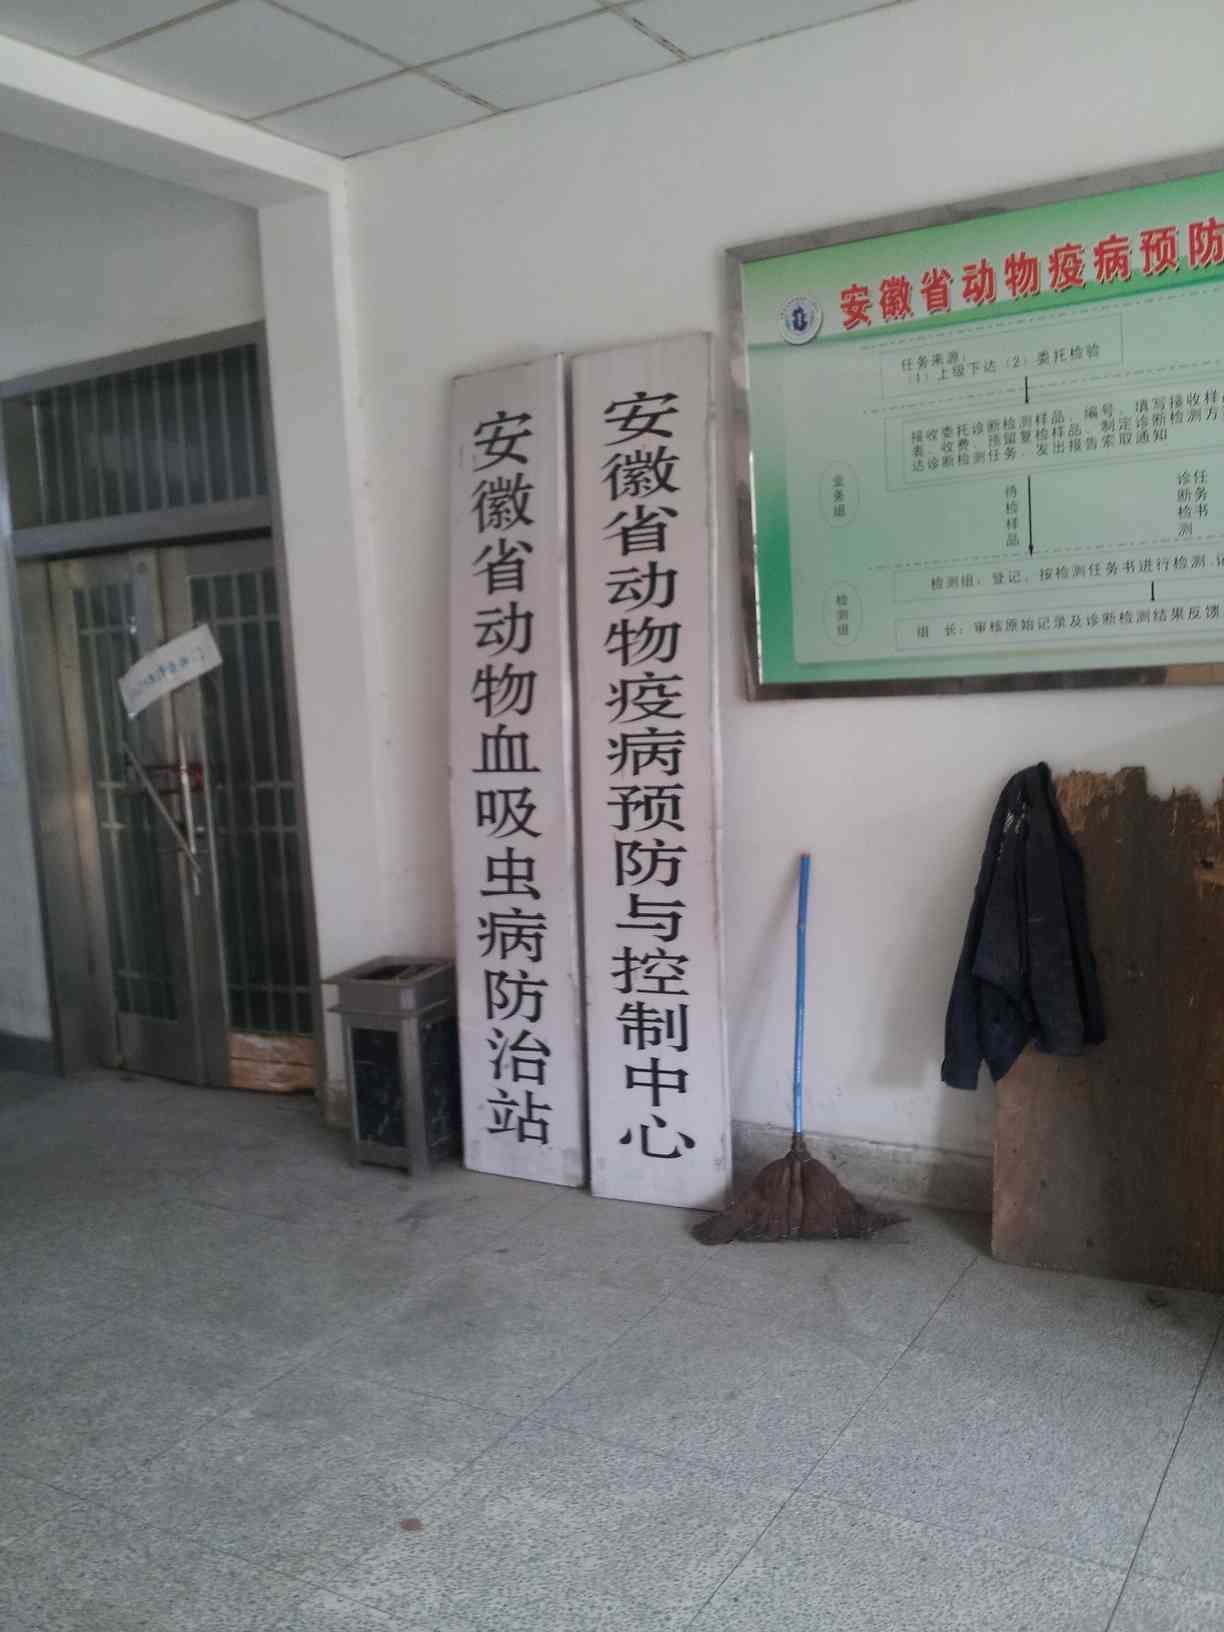 安徽省动物血吸虫病防治站
安徽省动物疫病预防与控制中心
安徽省动物疫病预防
任务来源：
（1）上级下达（2）委托检验
接收委托诊断检测样品、编号、填写接收样品
表、收费、预留复检样品、制定诊断检测方
达诊断检测任务、发出报告索取通知
业务组
待检样品
诊断检测
任务书
检测组：登记、按检测任务书进行检测、记
检测组
组　长：审核原始记录及诊断检测结果反馈